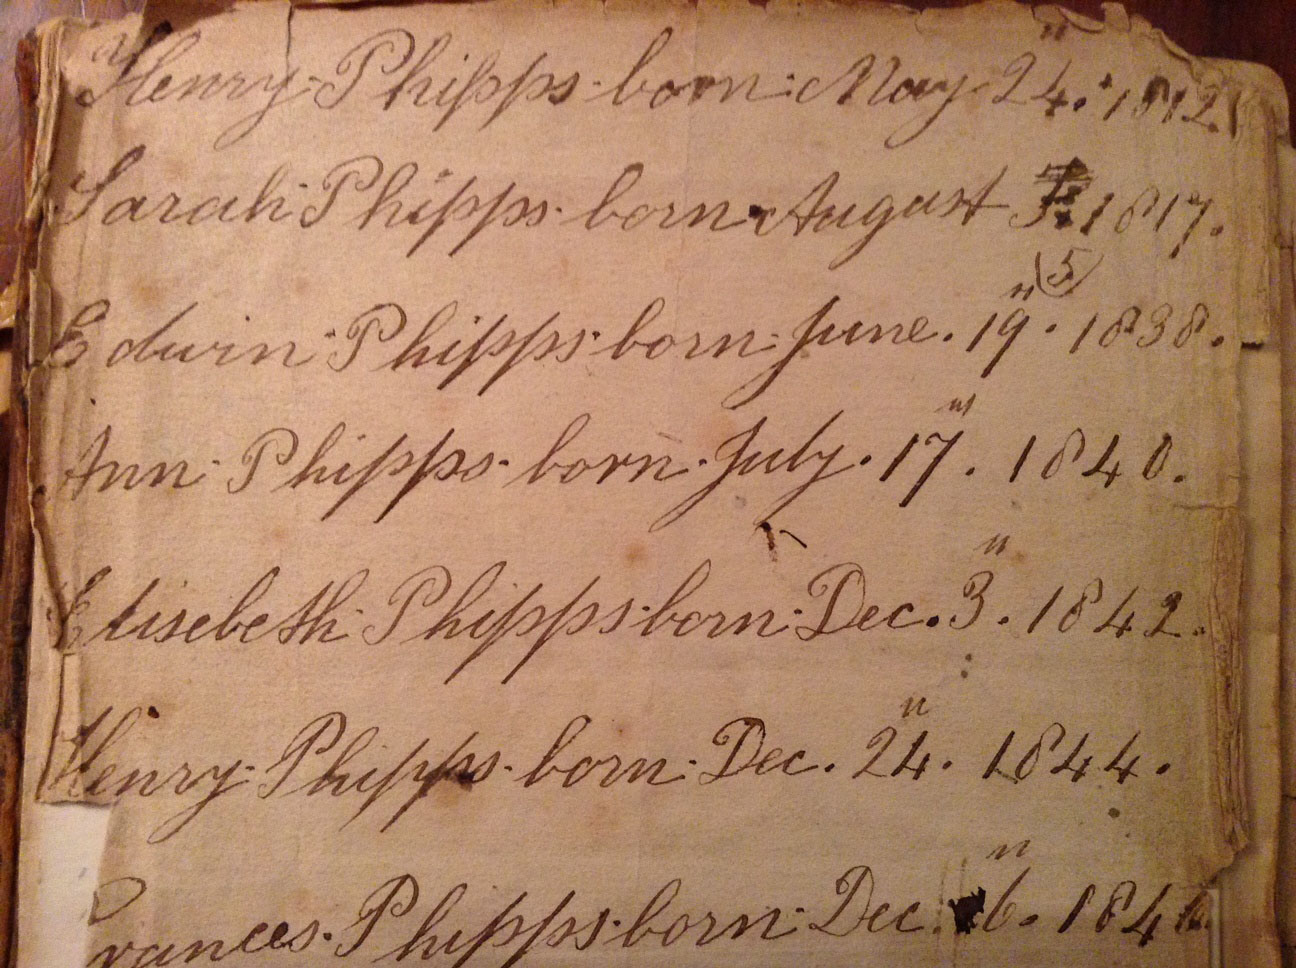 Henry Phipps born May 24. 1812.
Sarah Phipps born August 1817.
(5)
Edwin Phipps born June. 19. 1838.
Ann Phipps born July. 17. 1840.
Elisebeth Phipps born Dec. 3. 1842.
Henry Phipps born Dec. 24. 1844.
Frances Phipps born Dec. 6. 184